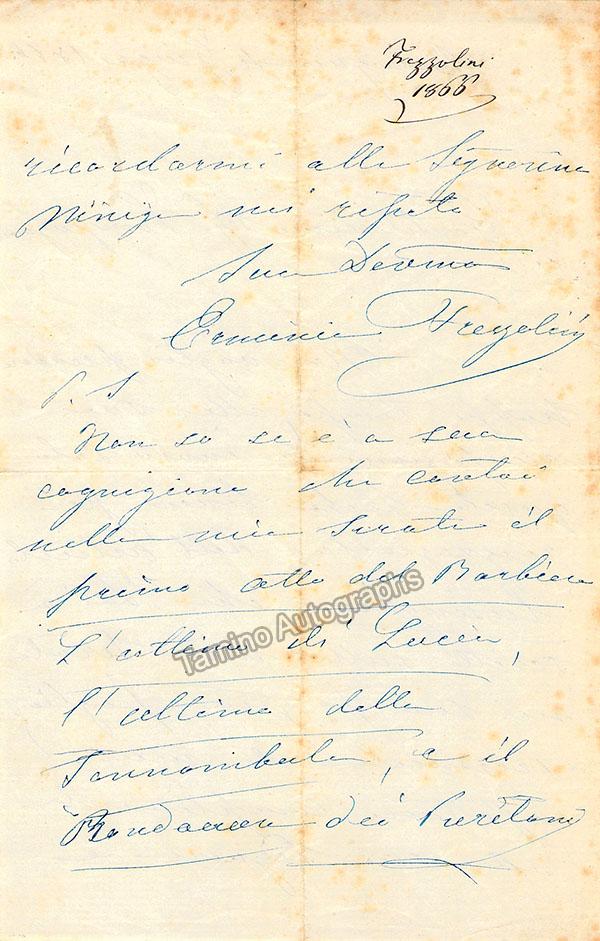 Frezzolini
1866
ricordarmi alla Signorina
mi ripeto
Sua Devma
Erminia Frezzolini
P. S
Non so se è a sua
cognizione che cantai
nella mia serata il
primo atto del Barbiere
L'ultimo di Lucia,
l'ultimo della
Sonnambula, e il
dei Puritani
Tamino Autographs